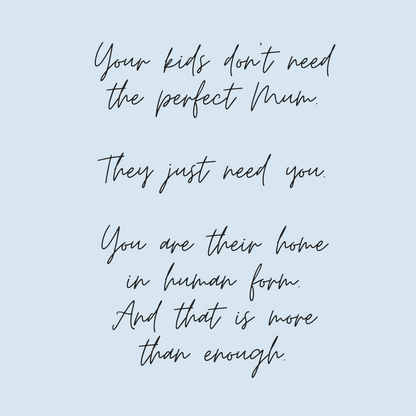 Your kids don't need
the perfect Mum.
They just need you.
You are their home
in human form.
And that is more
than enough.